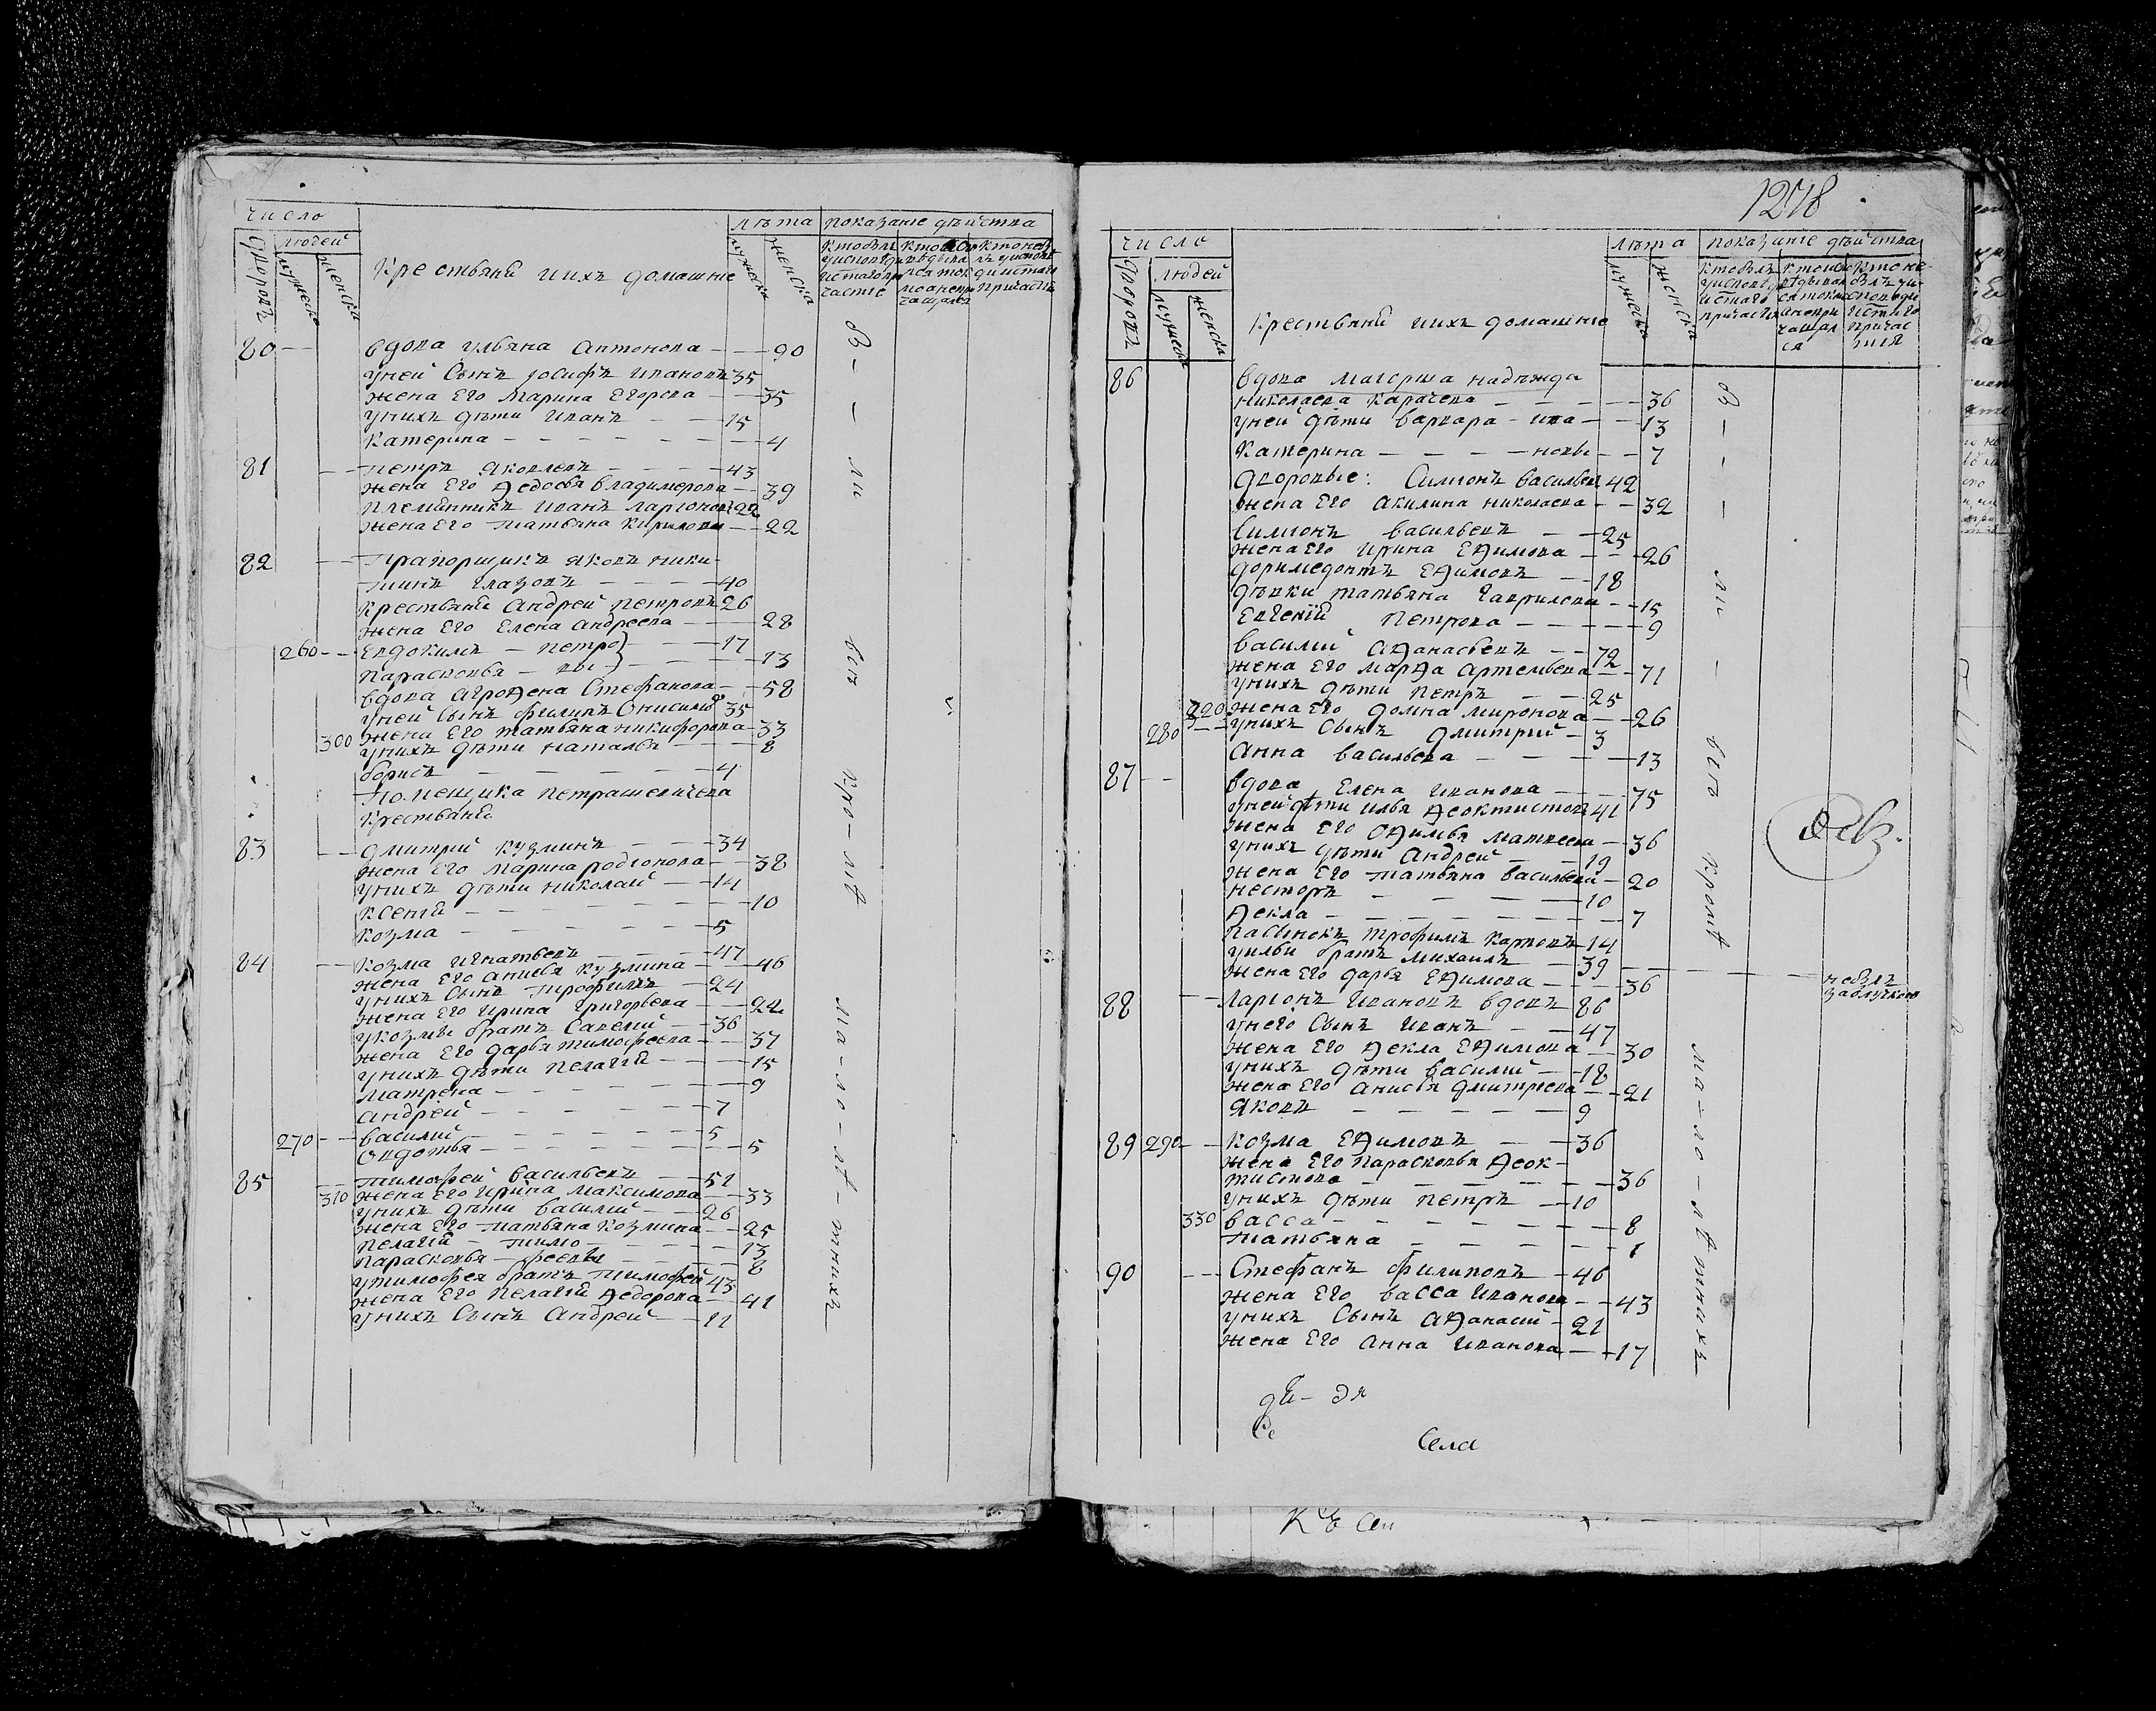 число
людей
дворовъ
мужеска
женска
Крестьяни иихъ домашние
лѣта
мужеска
женска
показание дѣиства
80 — вдова ульяна Антонова — — 90
унеи Сынъ Iосифъ Ивановъ 35
жена Его Марина Егорова — — 35
унихъ дѣти Иванъ — — 15
Катерина — — — — — 4
81 — петръ Яковлевъ — — — 43
жена Его Ѳедосья владимерова — 39
племянникъ Иванъ Ларионовъ 22
жена Его татьяна Кирилова — — 22
82 — Прапорщикъ яковъ ники-
тинъ Глазовъ — — — 40
крестьяни Андреи петровъ 26
жена Его Елена Андреева — — 28
260 — Евдокимъ — петро — 17
Парасковья — вы — — 13
вдова агроѲена Стефанова — — 58
унеи Сынъ филипъ Онисимо 35
300 жена Его татьяна никифорова — 33
унихъ дѣти наталья — — — 8
борисъ — — — — — 4
Помещика петрашевичева
Крестьяни
83 — дмитрий кузминъ — — 34
жена Его Марина родионова — — 38
унихъ дѣти николаи — 14
Ксения — — — — — 10
Козма — — — — — 5
84 — козма игнатьевъ — — — 47
жена Его Анисья кузмина — — 46
унихъ Сынъ трофимъ — 24
жена Его Ирина григорьева — — 22
укозмы братъ Савелий — 36
жена Его дарья тимофеева — — 37
унихъ дѣти пелагия — — — 15
Матрена — — — — — 9
андрей — — — — — 7
270 — василий — — — — 5
Овдотья — — — — — 5
85 — тимофеи васильевъ — 51
310 жена Его Ирина Максимова — — 33
унихъ дѣти василий — — 26
жена Его татьяна козмина — — 25
пелагия — тимо — — — 13
парасковья — феевы — — — 8
утимофея братъ тимофей 43
жена Его пелагия Ѳедорова — — 41
унихъ Сынъ Андрей — — 11
в — — — ли
всѣ
кро-мѣ
ма-ло-лѣ-тнихъ
1278
число
людей
дворовъ
мужеска
женска
Крестьяни иихъ домашние
лѣта
мужеска
женска
показание дѣиства
86 вдова Маiорша надѣжда
николаева карачева — — — 36
унеи дѣти варвара — ива — — 13
Катерина — — — — новы — — 7
дворовые: Симионъ васильевъ 42
жена Его Акилина николаева — — 32
Симионъ васильевъ — — 25
жена Его Ирина ЕѲимова — — 26
доримедонтъ ЕѲимовъ — 18
дѣвки татьяна гаврилова — — 15
Евгений Петрова — — — — 9
василий аѲанасьевъ — — 72
жена Его МарѲа Артемьева — — 71
унихъ дѣти петръ — — 25
320 жена Его домна миронова — — 26
280 — унихъ Сынъ дмитрий — 3
Анна васильева — — — — 13
87 — вдова Елена Иванова — — 75
унеи дѣти илья Ѳеоктистовъ 41
жена Его ОѲимья матвеева — 36
унихъ дѣти Андрей — — 19
жена Его татьяна васильева — 20
несторъ — — — — 10
Ѳекла — — — — — 7
пасынокъ трофимъ карповъ 14
уильи братъ михаилъ — 39
жена Его дарья ЕѲимова — — — 36
небылъ
88 — Ларионъ Ивановъ вдовъ 86
унего Сынъ Иванъ — — 47
жена Его Ѳекла ЕѲимова — — 30
унихъ дѣти василий — 18
жена Его анисья дмитриева — — 21
яковъ — — — — 9
89 290 — козма ЕѲимовъ — — 36
жена Его парасковья Ѳеок-
тистова — — — — — 36
унихъ дѣти петръ — 10
330 васса — — — — — 8
татьяна — — — — — 1
90 — Стефанъ филиповъ — 46
жена Его васса Иванова — — 43
унихъ Сынъ аѲанасий — 21
жена Его Анна Иванова — — 17
в — — — ли
всѣ
кромѣ
ма-ло-лѣтнихъ
Села